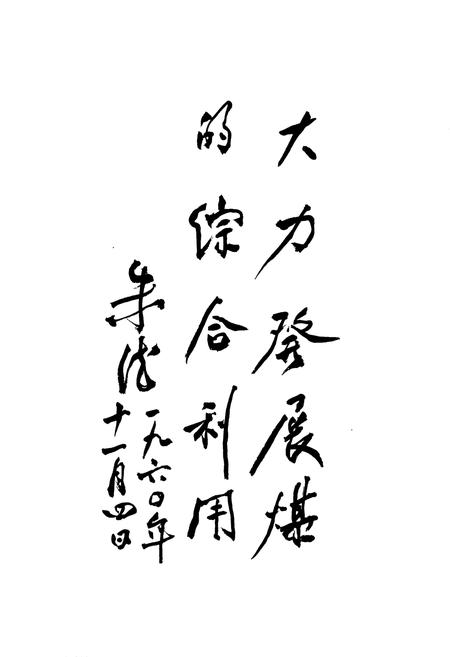 大力發展煤
的综合利用
朱德
一九六〇年
十一月四日